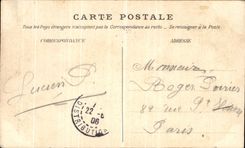 CARTE POSTALE
Tous les Pays étrangers n'acceptent pas la Correspondance au recto. — Se renseigner à la Poste
CORRESPONDANCE
ADRESSE
Lucien P.
Monsieur
Roger Poirier
82 rue
Paris
22 -
06